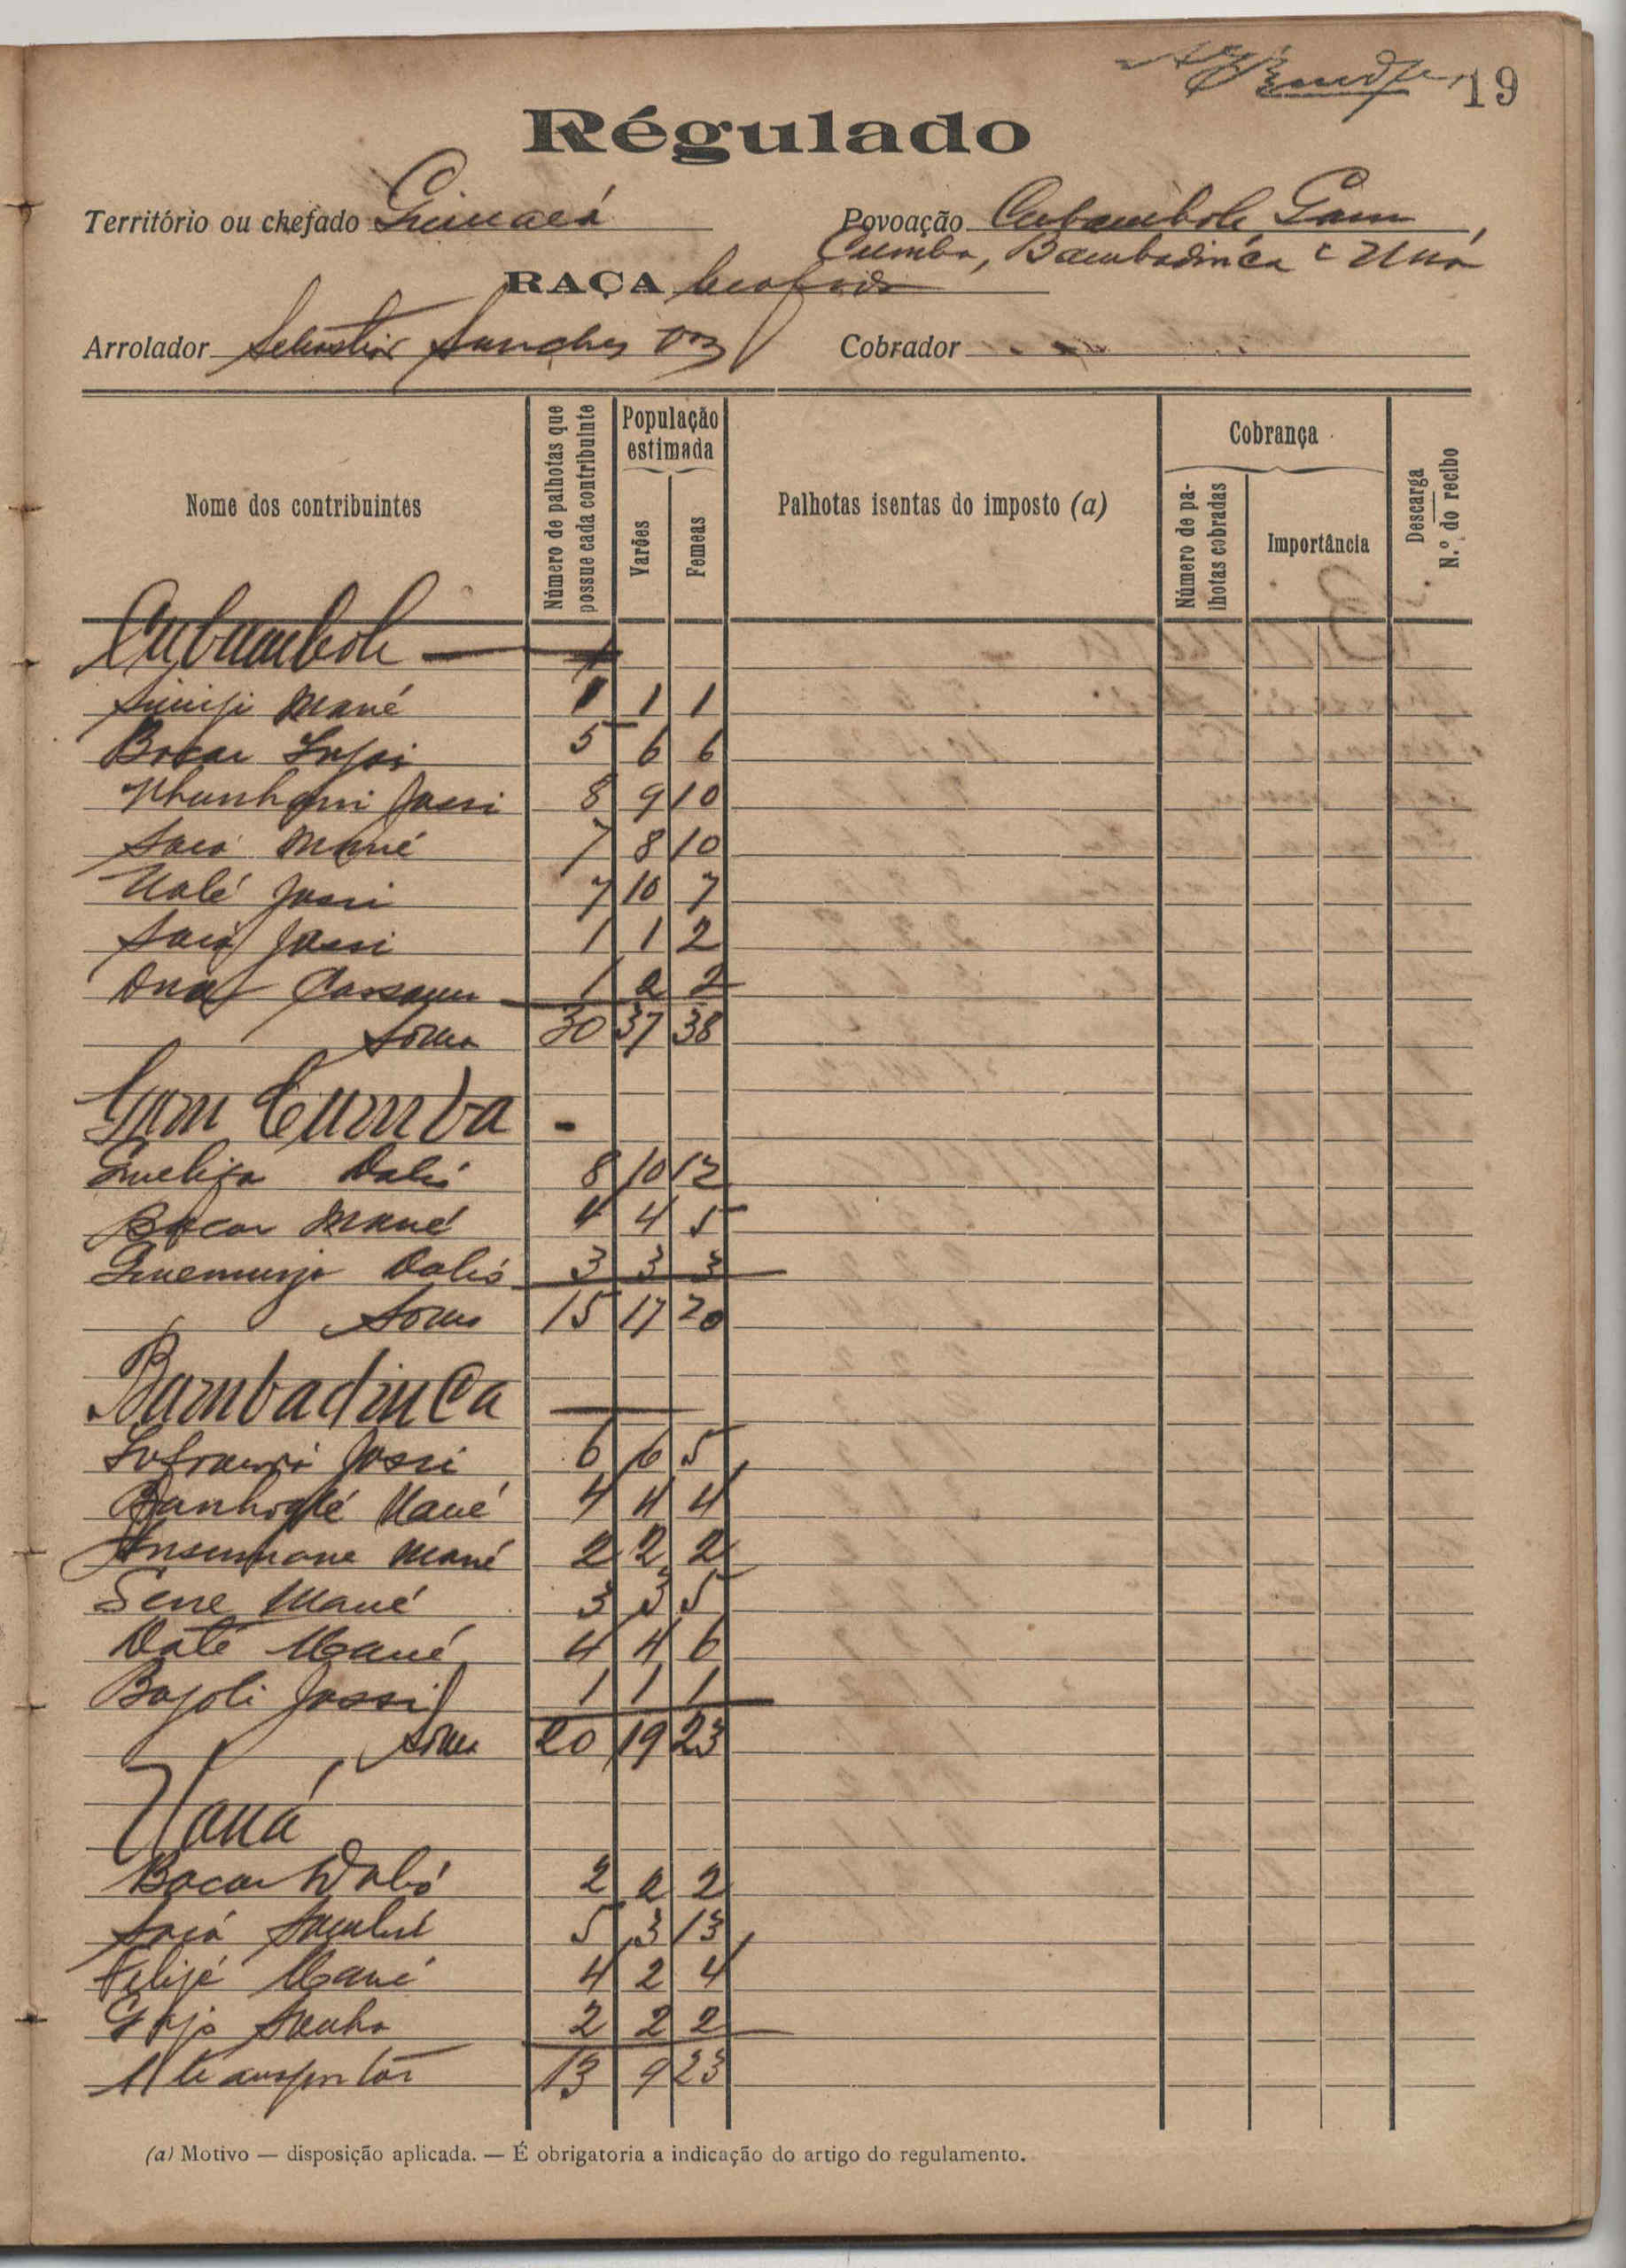 19
Régulado
Território ou chefado
Povoação Cubambole Gam
Cumba, Bambadinca e Uná
RAÇA beafada
Arrolador Sebastião Sanches Vaz
Cobrador
Nome dos contribuintes
Número de palhotas que possue cada contribuinte
População estimada
Varões
Femeas
Palhotas isentas do imposto (a)
Cobrança
Número de palhotas cobradas
Importância
Descarga
N.º do recibo
Cubambole — 1
Mané 1 1 1
Bocar 5 6 6
Jassi 8 9 10
Mané 7 8 10
Ualé Jassi 7 10 7
Jassi 1 1 2
Cassamá 1 2 2
Soma 30 37 38
Gam Cumba -
Dabó 8 10 12
Bacar Mané 4 4 5
Dabó 3 3 3
Soma 15 17 20
Bambadinca —
Jassi 6 6 5
Mané 4 4 4
Ansumane Mané 2 2 2
Sene Mané 3 3 5
Mané 4 4 6
Bajoli Jassi 1 1 1
Soma 20 19 23
Uaná
Bacar Dabó 2 2 2
5 3 13
Mané 4 2 4
Sanha 2 2 2
A transportar 13 9 23
(a) Motivo — disposição aplicada. — É obrigatoria a indicação do artigo do regulamento.